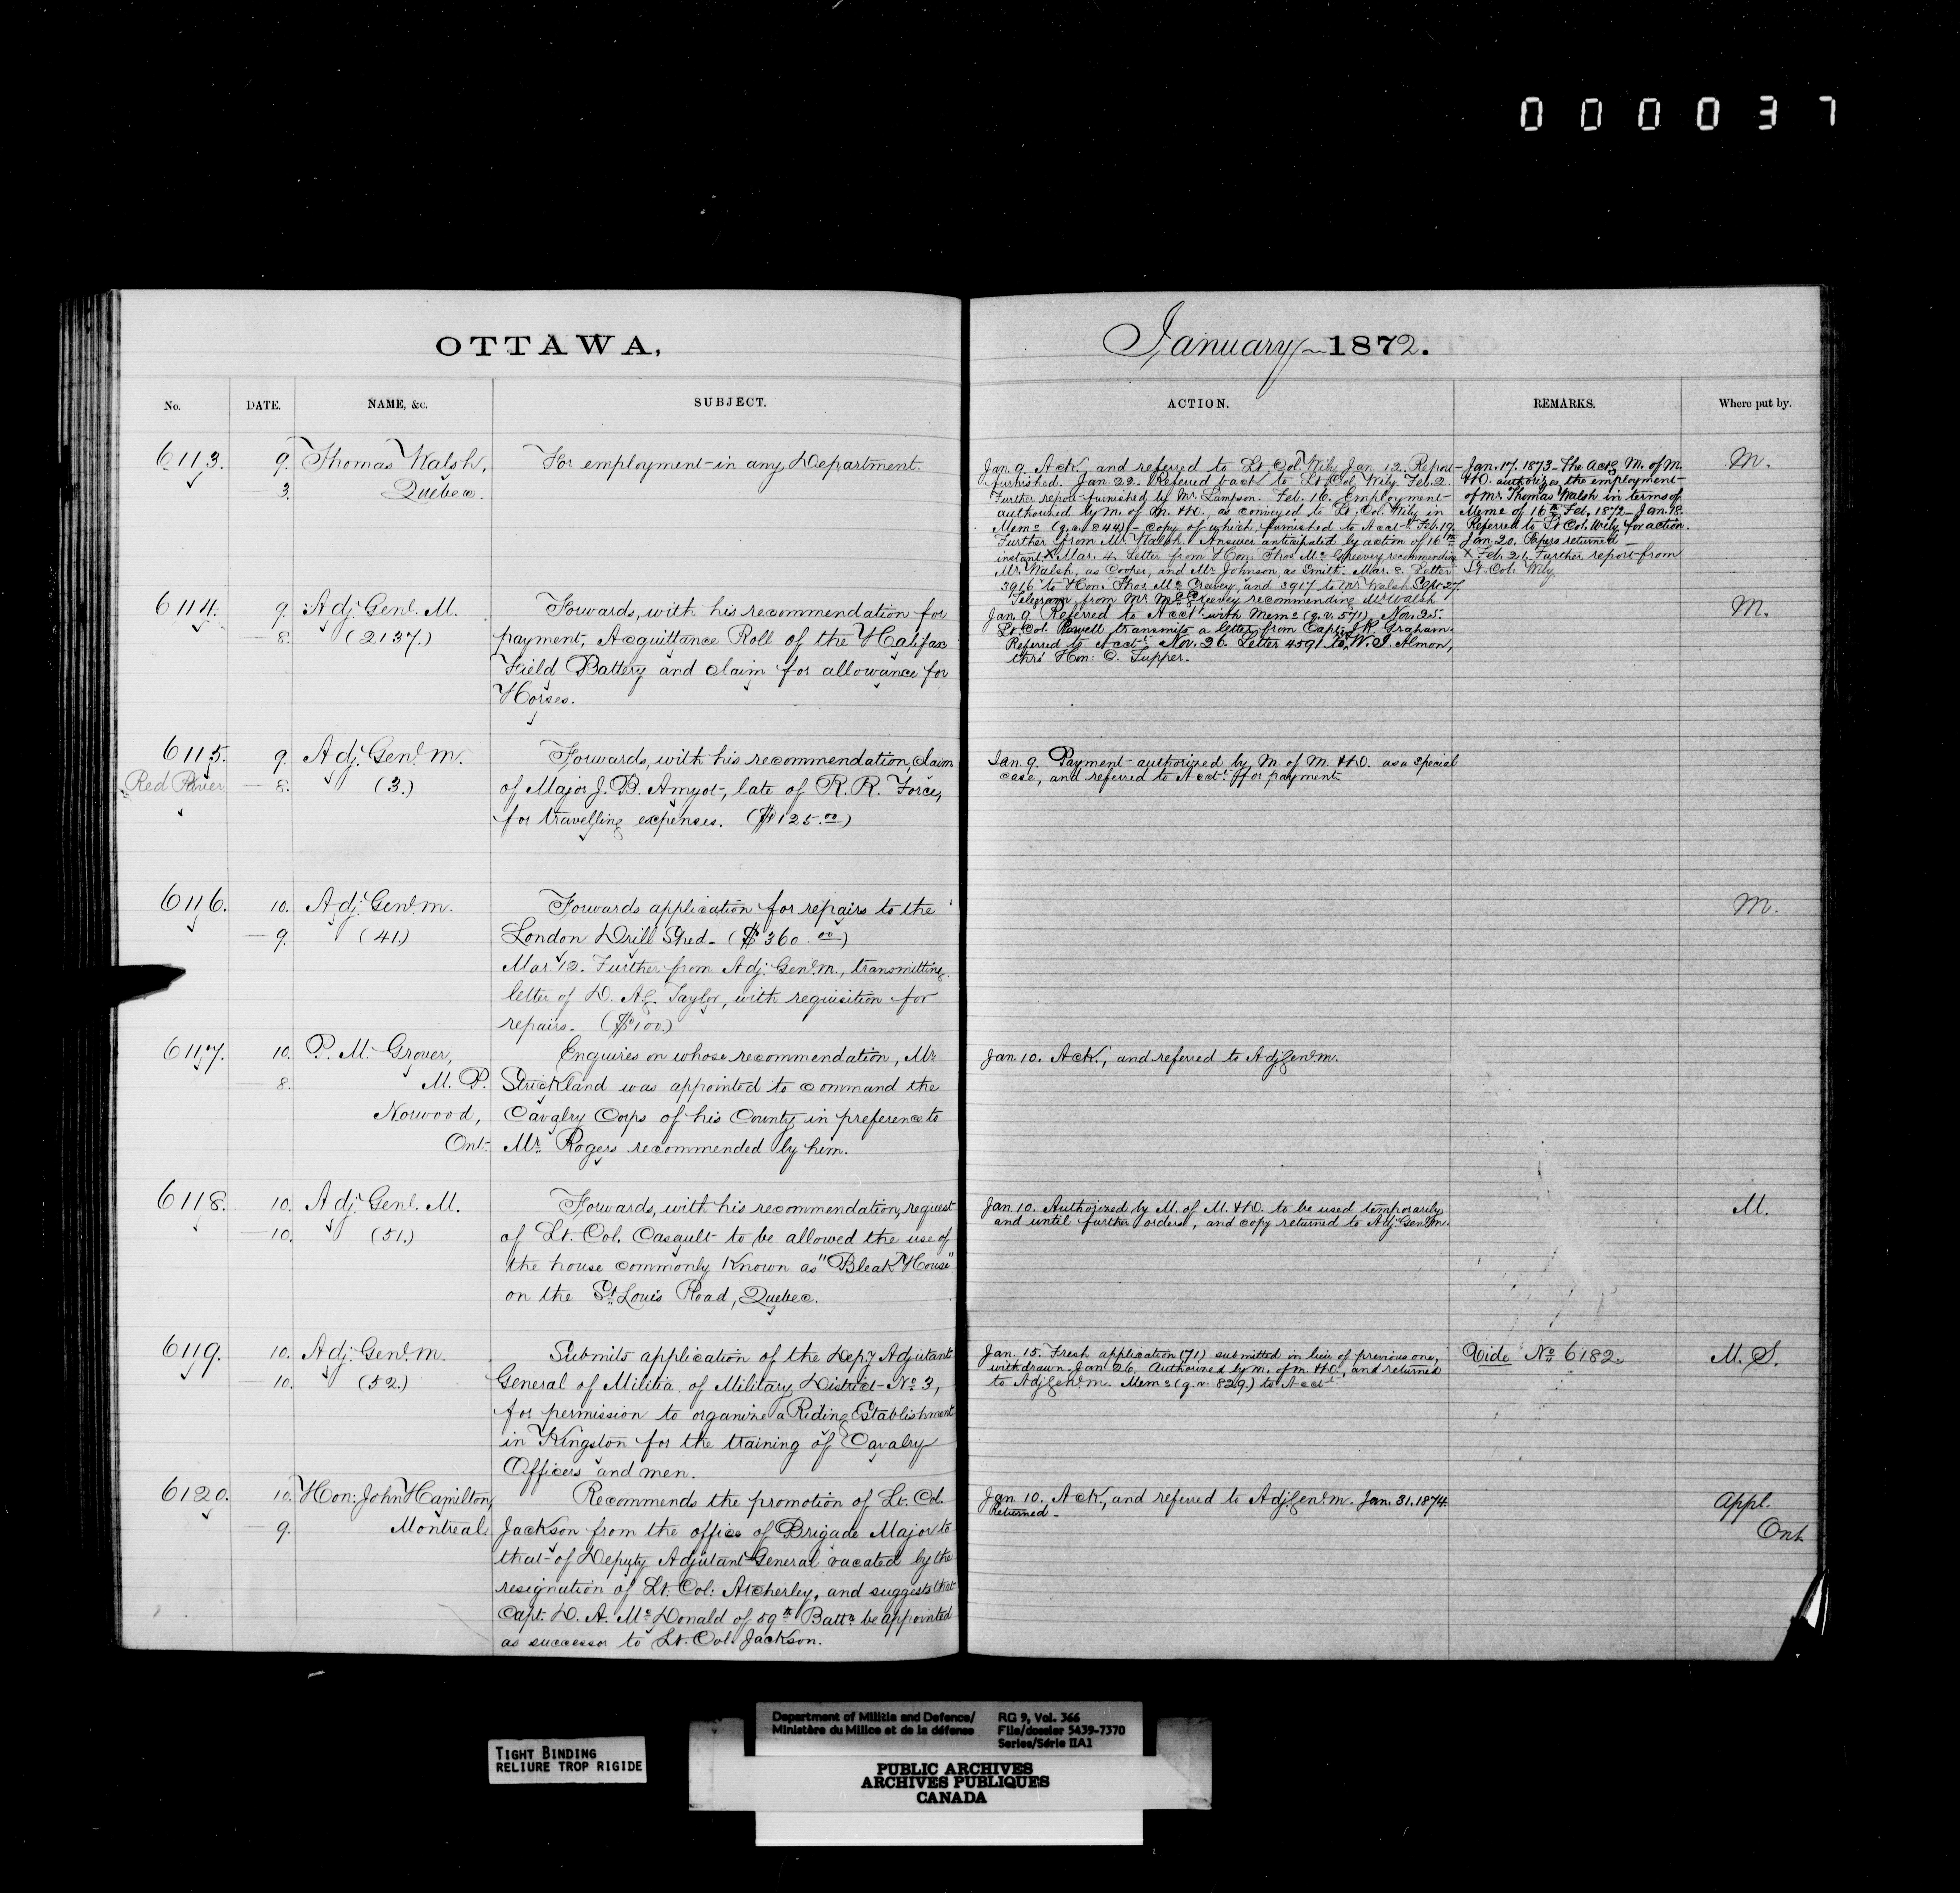 000037
OTTAWA,
No. DATE. NAME, &c. SUBJECT.
6113. 9. Thomas Walsh, For employment in any Department.
3. Quebec.
6114. 9. Adj. Genl. M. Forwards, with his recommendation for
8. (2137.) payment, Acquittance Roll of the Halifax
Field Battery and claim for allowance for
Horses.
6115. 9. Adj. Genl. M. Forwards, with his recommendation, claim
Red River 8. (3.) of Major J. B. Amyot, late of R. R. Force,
for travelling expenses. ($125.00)
6116. 10. Adj. Genl. M. Forwards application for repairs to the
9. (41.) London Drill Shed. ($360.00)
Mar 12. Further from Adj. Genl. M., transmitting
letter of Taylor, with requisition for
repairs. ($100.)
6117. 10. P. M. Grover, Enquires on whose recommendation, Mr
8. M. P. Strickland was appointed to command the
Norwood, Cavalry Corps of his County in preference to
Ont. Mr. Rogers recommended by him.
6118. 10. Adj. Genl. M. Forwards, with his recommendation, request
10. (51.) of Lt. Col. Casault to be allowed the use of
the house commonly known as "Bleak House"
on the St. Louis Road, Quebec.
6119. 10. Adj. Genl. M. Submits application of the Depy Adjutant
10. (52.) General of Militia of Military District No. 3,
for permission to organize a Riding Establishment
in Kingston for the training of Cavalry
Officers and men.
6120. 10. Hon: John Hamilton, Recommends the promotion of Lt. Col.
9. Montreal. Jackson from the office of Brigade Major to
that of Deputy Adjutant General vacated by the
resignation of Lt. Col: Atcherley, and suggests that
Capt. D. A. McDonald of 59th Battn be appointed
as successor to Lt. Col. Jackson.
January 1872.
ACTION. REMARKS. Where put by.
Jan. 9. Ack. and referred to Lt. Col. Wily Jan. 12. Report
furnished. Jan. 22. Referred back to Lt. Col. Wily. Feb. 2.
Further report furnished by Mr. Lampson. Feb. 16. Employment
authorized by M. of M. & D., as conveyed to Lt. Col. Wily in
Memo (q.v. 844) - copy of which furnished to Acct. Feb. 19.
Further from Mr. Walsh. Answer anticipated by action of 16th
instant. X Mar. 4. Letter from Hon. Thos. McGreevey recommending
Mr. Walsh, as Cooper, and Mr Johnson, as Smith. Mar. 8. Letter
3916 to Hon. Thos. McGreevey, and 3917 to Mr Walsh. Sept. 27.
Telegram from Mr. McGreevey recommending Mr Walsh.
Jan. 17. 1873. The Actg M. of M.
& D. authorizes the employment
of Mr. Thomas Walsh in terms of
Memo of 16th Feb. 1872. Jan. 18.
Referred to Lt Col. Wily for action.
Jan. 20. Papers returned.
X Feb. 21. Further report from
Lt. Col. Wily.
M.
Jan. 9. Referred to Acct. with Memo (q.v. 571) Nov. 25.
Lt. Col. Powell transmits a letter from Capt. Graham.
Referred to Acct. Nov. 26. Letter 4591 to W. J. Almon,
thro' Hon: C. Tupper.
M.
Jan. 9. Payment authorized by M. of M. & D. as a special
case, and referred to Acct. for payment.
M.
Jan. 10. Ack., and referred to Adj. Genl. M.
Jan. 10. Authorized by M. of M. & D. to be used temporarily
and until further orders, and copy returned to Adj. Genl. M.
M.
Jan. 15. Fresh application (71) submitted in lieu of previous one, Vide No. 6182. M. S.
withdrawn. Jan. 26. Authorized by M. of M. & D., and returned
to Adj. Genl. M. Memo (q.v. 829.) to Acct.
Jan. 10. Ack., and referred to Adj. Genl. M. Jan. 31. 1874 Appl.
Returned. Ont.
TIGHT BINDING
RELIURE TROP RIGIDE
Department of Militia and Defence/ RG 9, Vol. 366
Ministère du Milice et de la défense File/dossier 5439-7370
Series/Série IIA1
PUBLIC ARCHIVES
ARCHIVES PUBLIQUES
CANADA